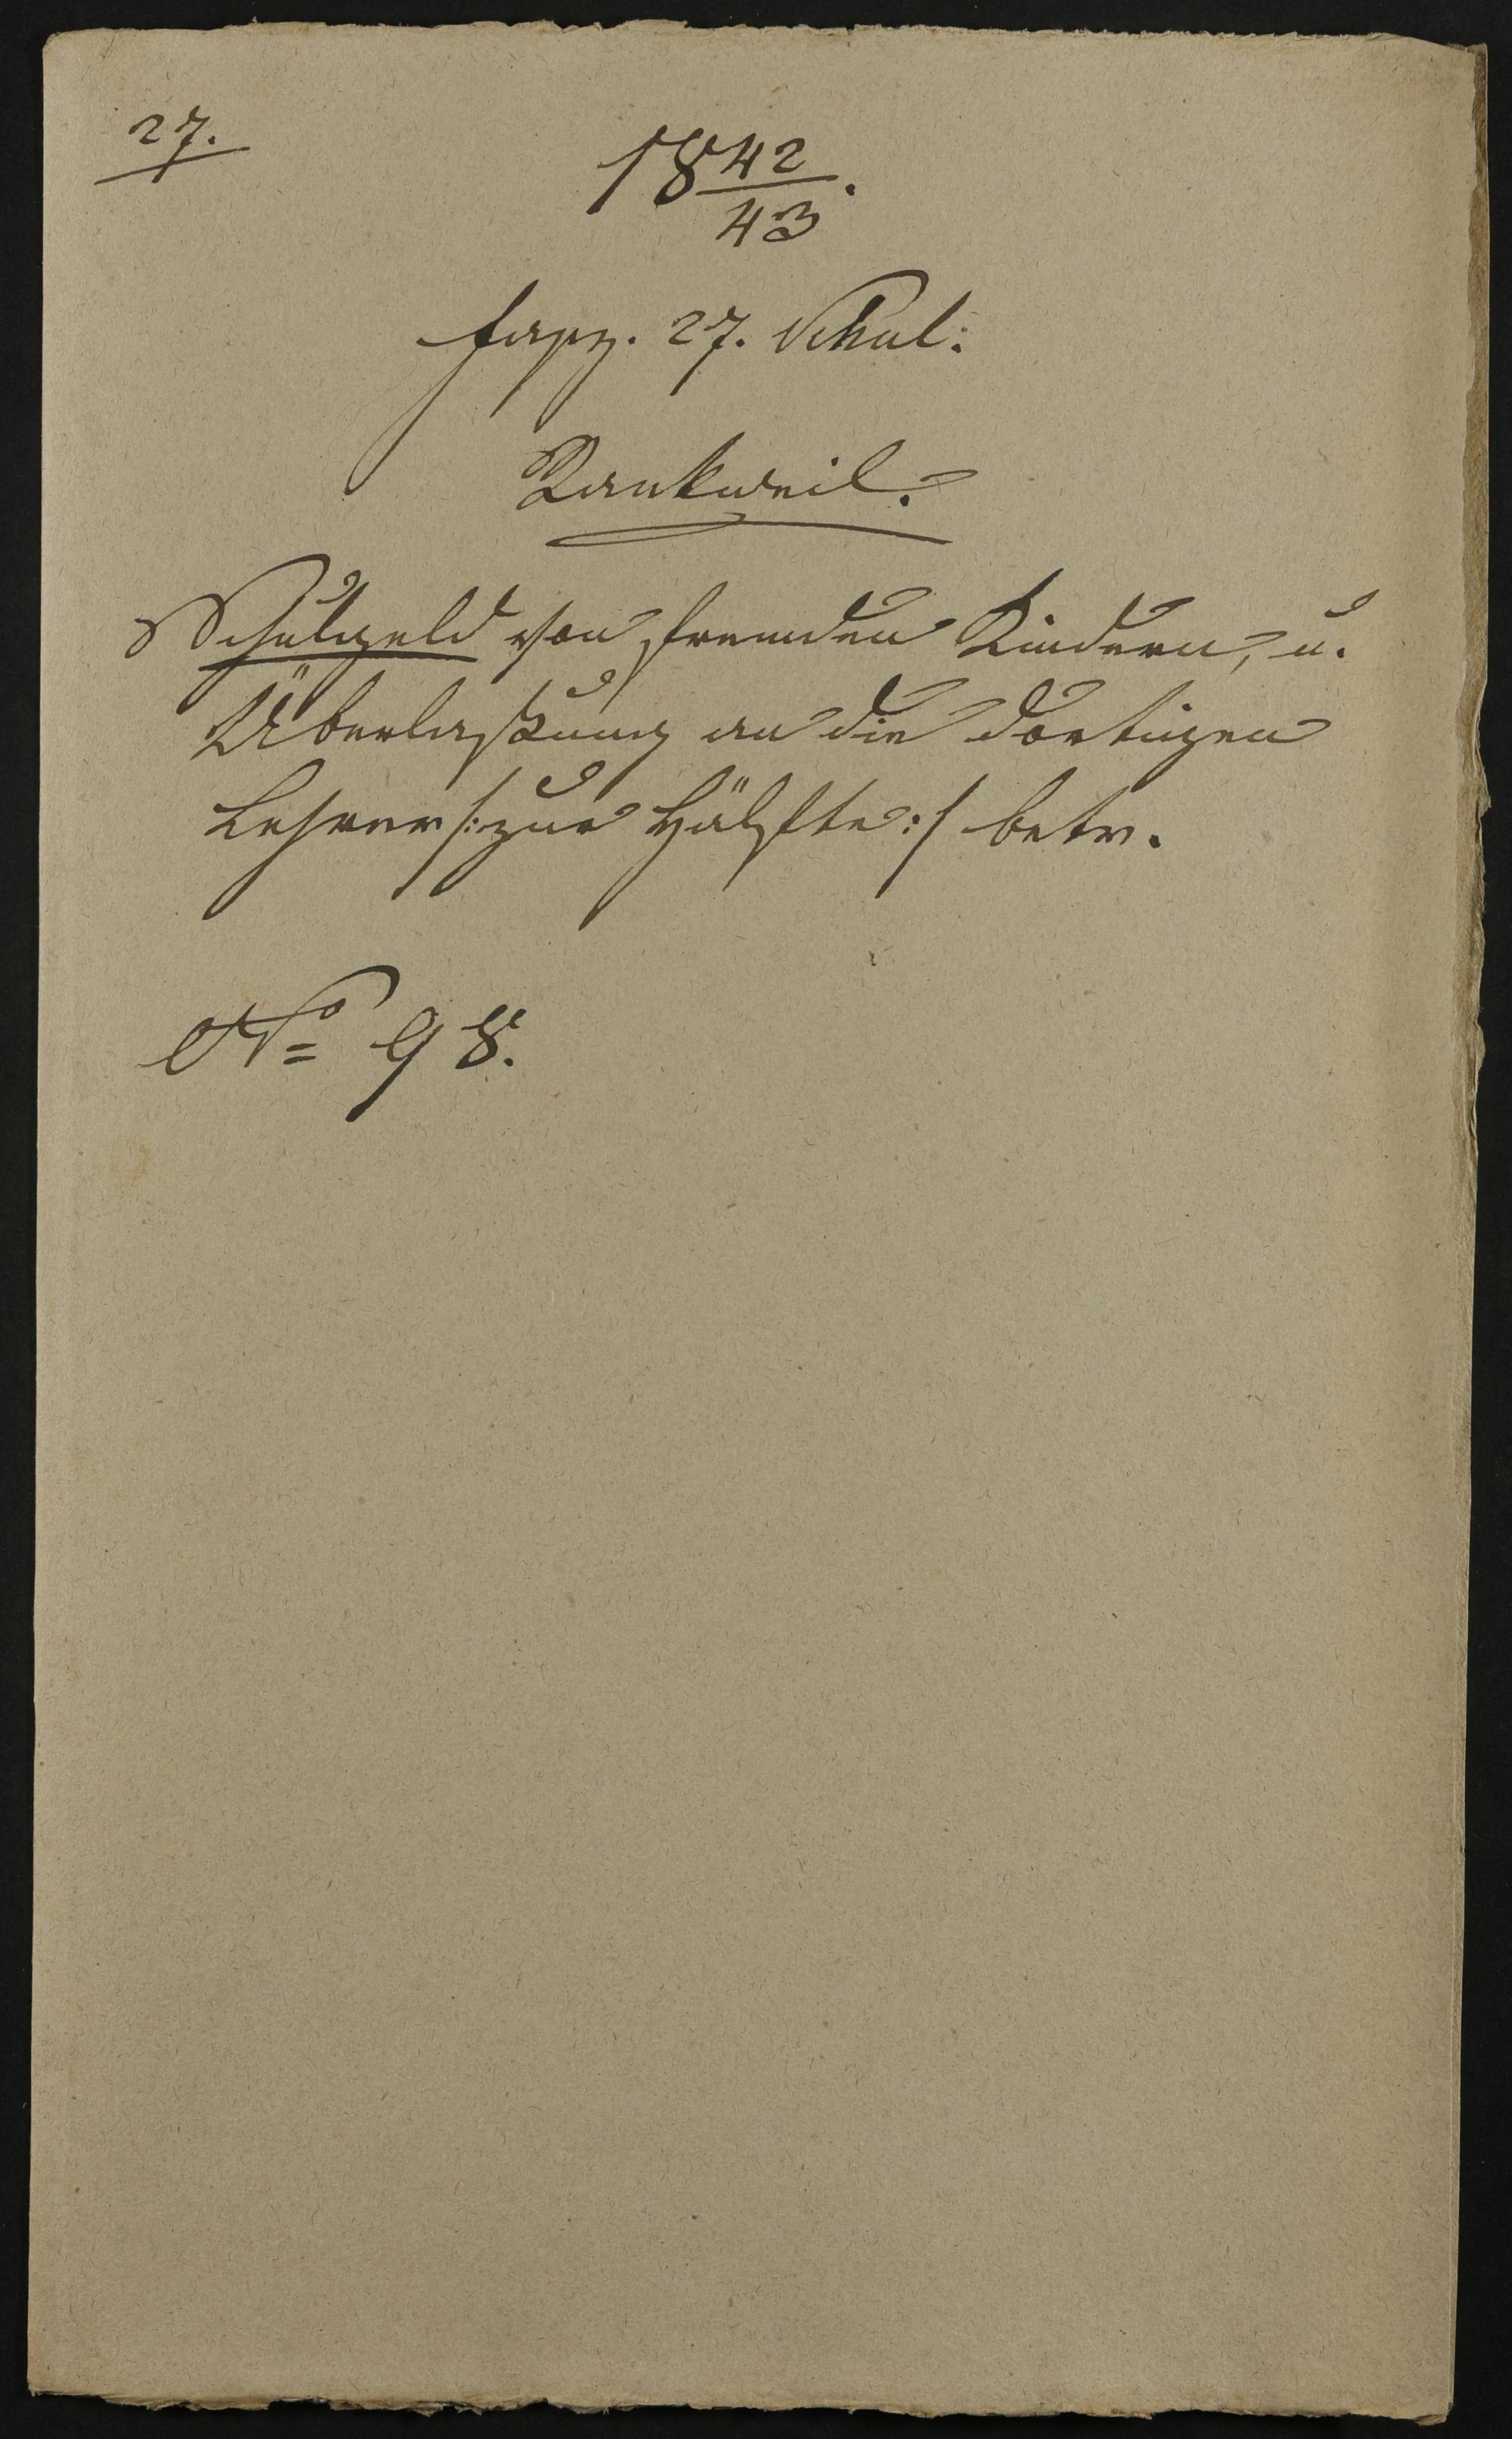 27.
18 42/43.
fasz. 27. Schul:
Rankweil.
Schulgeld von fremden Kindern, u.
Überlaßung an die dortigen
Lehrer /: zur Hälfte :/ betr.
No 98.